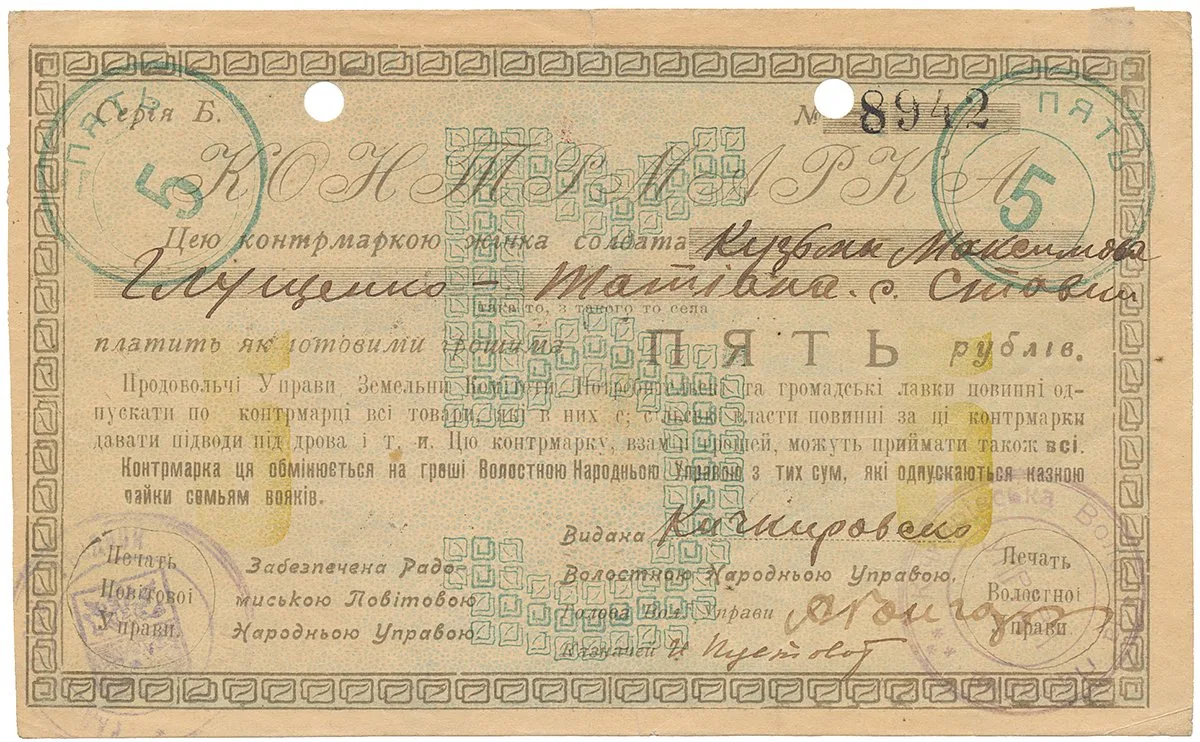 Серія Б.
№ 8942
ПЯТЬ
5
ПЯТЬ
5
КОНТРМАРКА
Цею контрмаркою жінка солдата Кузьми Максимова
Глущенко – Татіяна. с. Ставки
така то, з такого то села
платить як готовими грошима ПЯТЬ рублів.
Продовольчі Управи Земельні Комітети, Потребительські та громадські лавки повинні од-
пускати по контрмарці всі товари, які в них є; сільські власти повинні за ці контрмарки
давати підводи під дрова і т. и. Цю контрмарку, взамін грошей, можуть приймати також всі.
Контрмарка ця обмінюється на гроші Волостною Народньою Управою з тих сум, які одпускаються казною
пайки семьям вояків.
Видана Кичкировско
Печать
Повітової
Управи.
Забезпечена Радо-
миською Повітовою
Народньою Управою
Волостною Народньою Управою,
Голова Вол. Управи
Казначей И Пустовот
Печать
Волостної
Управи.